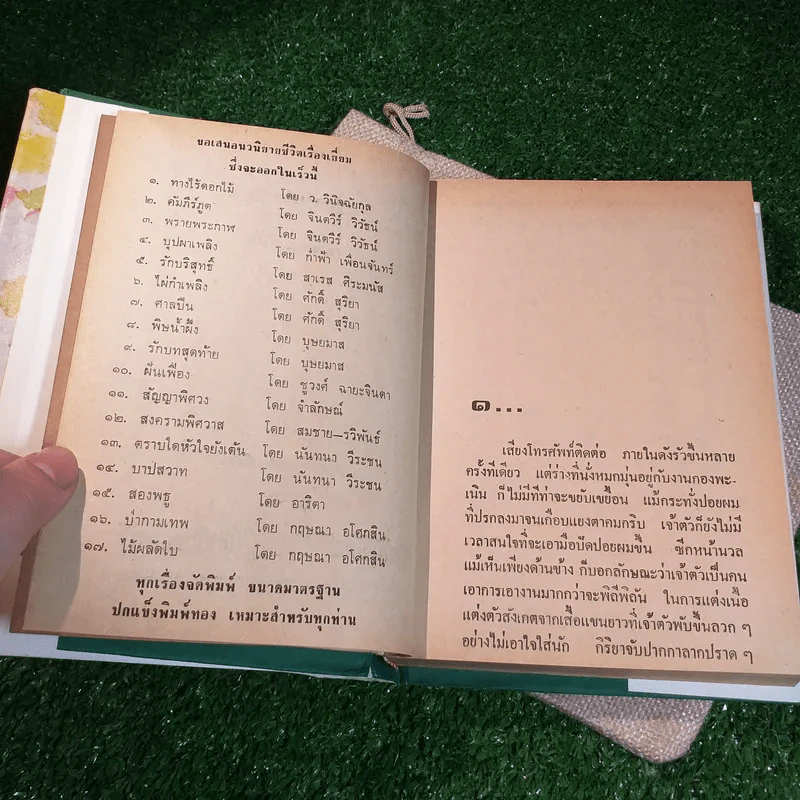 ขอเสนอนวนิยายชีวิตเรื่องเยี่ยม
ซึ่งจะออกในเร็วนี้
๑. ทางไร้ดอกไม้ โดย ว. วินิจฉัยกุล
๒. คัมภีร์ภูต โดย จินตวีร์ วิวัธน์
๓. พรายพระกาฬ โดย จินตวีร์ วิวัธน์
๔. บุปผาเพลิง โดย ก่ำฟ้า เพื่อนจันทร์
๕. รักบริสุทธิ์ โดย สาเรส ศิระมนัส
๖. ไผ่กำเพลิง โดย ศักดิ์ สุริยา
๗. ศาลปืน โดย ศักดิ์ สุริยา
๘. พิษน้ำผึ้ง โดย บุษยมาส
๙. รักบทสุดท้าย โดย บุษยมาส
๑๐. ฝันเฟื่อง โดย ชูวงศ์ ฉายะจินดา
๑๑. สัญญาพิศวง โดย จำลักษณ์
๑๒. สงครามพิศวาส โดย สมชาย–รวิพันธ์
๑๓. ตราบใดหัวใจยังเต้น โดย นันทนา วีระชน
๑๔. บาปสวาท โดย นันทนา วีระชน
๑๕. สองพธู โดย อาริตา
๑๖. บ่วงกามเทพ โดย กฤษณา อโศกสิน
๑๗. ไม้ผลัดใบ โดย กฤษณา อโศกสิน
ทุกเรื่องจัดพิมพ์ ขนาดมาตรฐาน
ปกแข็งพิมพ์ทอง เหมาะสำหรับทุกท่าน
๑...
เสียงโทรศัพท์ติดต่อ ภายในดังรัวขึ้นหลาย
ครั้งทีเดียว แต่ร่างที่นั่งหมกมุ่นอยู่กับงานกองพะ-
เนิน ก็ไม่มีทีท่าจะขยับเขยื้อน แม้กระทั่งปอยผม
ที่ปรกลงมาจนเกือบแยงตาคมกริบ เจ้าตัวก็ยังไม่มี
เวลาสนใจที่จะเอามือปัดปอยผมขึ้น ซีกหน้านวล
แม้เห็นเพียงด้านข้าง ก็บอกลักษณะว่าเจ้าตัวเป็นคน
เอาการเอางานมากกว่าจะพิถีพิถัน ในการแต่งเนื้อ
แต่งตัวสังเกตจากเสื้อแขนยาวที่เจ้าตัวพับขึ้นลวก ๆ
อย่างไม่เอาใจใส่นัก กิริยาจับปากกาลากปราด ๆ